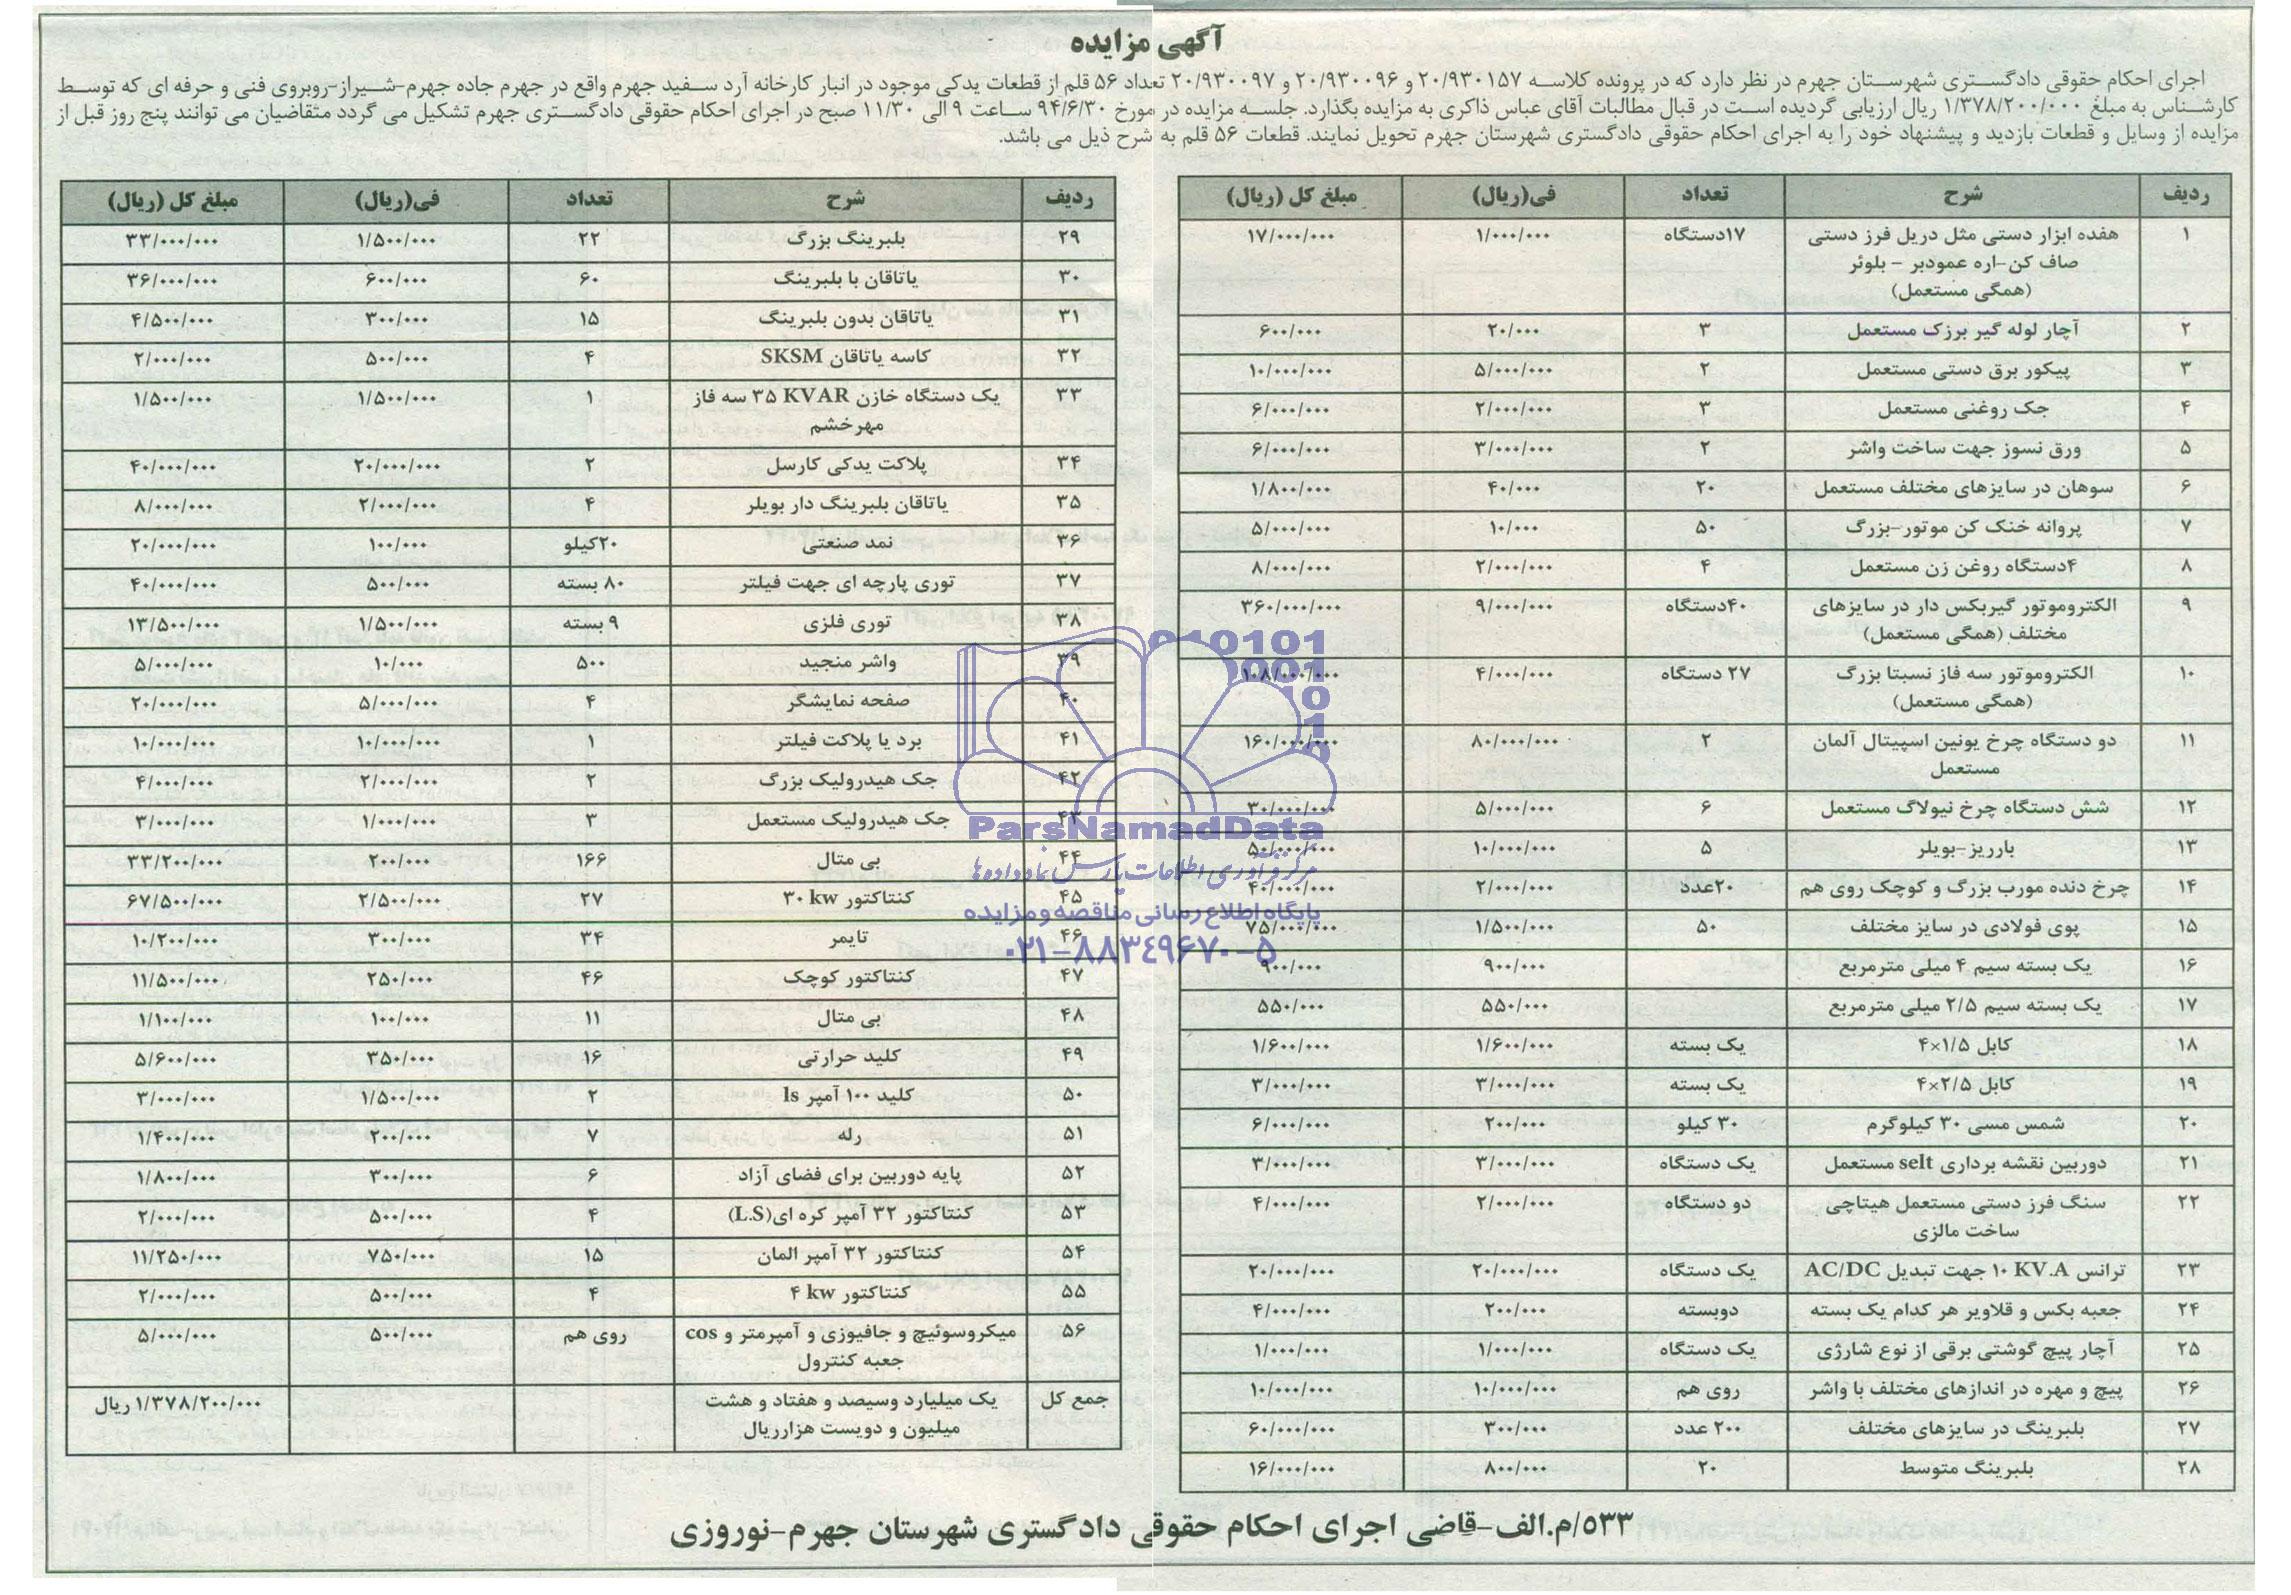 آگهی مزایده
اجرای احکام حقوقی دادگستری شهرستان جهرم در نظر دارد که در پرونده کلاسه ۲۰/۹۳۰۱۵۷ و ۲۰/۹۳۰۰۹۶ و ۲۰/۹۳۰۰۹۷ تعداد ۵۶ قلم از قطعات یدکی موجود در انبار کارخانه آرد سفید جهرم واقع در جهرم جاده جهرم-شیراز-روبروی فنی و حرفه ای که توسط
کارشناس به مبلغ ۱/۳۷۸/۲۰۰/۰۰۰ ریال ارزیابی گردیده است در قبال مطالبات آقای عباس ذاکری به مزایده بگذارد. جلسه مزایده در مورخ ۹۴/۶/۳۰ ساعت ۹ الی ۱۱/۳۰ صبح در اجرای احکام حقوقی دادگستری جهرم تشکیل می گردد متقاضیان می توانند پنج روز قبل از
مزایده از وسایل و قطعات بازدید و پیشنهاد خود را به اجرای احکام حقوقی دادگستری شهرستان جهرم تحویل نمایند. قطعات ۵۶ قلم به شرح ذیل می باشد.
ردیف شرح تعداد فی(ریال) مبلغ کل (ریال)
۱ هفده ابزار دستی مثل دریل فرز دستی ۱۷دستگاه ۱/۰۰۰/۰۰۰ ۱۷/۰۰۰/۰۰۰
صاف کن-اره عمودبر – بلوئر
(همگی مستعمل)
۲ آچار لوله گیر برزک مستعمل ۳ ۲۰/۰۰۰ ۶۰۰/۰۰۰
۳ پیکور برق دستی مستعمل ۲ ۵/۰۰۰/۰۰۰ ۱۰/۰۰۰/۰۰۰
۴ جک روغنی مستعمل ۳ ۲/۰۰۰/۰۰۰ ۶/۰۰۰/۰۰۰
۵ ورق نسوز جهت ساخت واشر ۲ ۳/۰۰۰/۰۰۰ ۶/۰۰۰/۰۰۰
۶ سوهان در سایزهای مختلف مستعمل ۲۰ ۴۰/۰۰۰ ۱/۸۰۰/۰۰۰
۷ پروانه خنک کن موتور-بزرگ ۵۰ ۱۰/۰۰۰ ۵/۰۰۰/۰۰۰
۸ ۴دستگاه روغن زن مستعمل ۴ ۲/۰۰۰/۰۰۰ ۸/۰۰۰/۰۰۰
۹ الکتروموتور گیربکس دار در سایزهای ۴۰دستگاه ۹/۰۰۰/۰۰۰ ۳۶۰/۰۰۰/۰۰۰
مختلف (همگی مستعمل)
۱۰ الکتروموتور سه فاز نسبتا بزرگ ۲۷ دستگاه ۴/۰۰۰/۰۰۰ ۱۰۸/۰۰۰/۰۰۰
(همگی مستعمل)
۱۱ دو دستگاه چرخ یونین اسپیتال آلمان ۲ ۸۰/۰۰۰/۰۰۰ ۱۶۰/۰۰۰/۰۰۰
مستعمل
۱۲ شش دستگاه چرخ نیولاگ مستعمل ۶ ۵/۰۰۰/۰۰۰ ۳۰/۰۰۰/۰۰۰
۱۳ بارریز-بویلر ۵ ۱۰/۰۰۰/۰۰۰ ۵۰/۰۰۰/۰۰۰
۱۴ چرخ دنده مورب بزرگ و کوچک روی هم ۲۰عدد ۲/۰۰۰/۰۰۰ ۴۰/۰۰۰/۰۰۰
۱۵ پوی فولادی در سایز مختلف ۵۰ ۱/۵۰۰/۰۰۰ ۷۵/۰۰۰/۰۰۰
۱۶ یک بسته سیم ۴ میلی مترمربع ۹۰۰/۰۰۰ ۹۰۰/۰۰۰
۱۷ یک بسته سیم ۲/۵ میلی مترمربع ۵۵۰/۰۰۰ ۵۵۰/۰۰۰
۱۸ کابل ۴×۱/۵ یک بسته ۱/۶۰۰/۰۰۰ ۱/۶۰۰/۰۰۰
۱۹ کابل ۴×۲/۵ یک بسته ۳/۰۰۰/۰۰۰ ۳/۰۰۰/۰۰۰
۲۰ شمس مسی ۳۰ کیلوگرم ۳۰ کیلو ۲۰۰/۰۰۰ ۶/۰۰۰/۰۰۰
۲۱ دوربین نقشه برداری selt مستعمل یک دستگاه ۳/۰۰۰/۰۰۰ ۳/۰۰۰/۰۰۰
۲۲ سنگ فرز دستی مستعمل هیتاچی دو دستگاه ۲/۰۰۰/۰۰۰ ۴/۰۰۰/۰۰۰
ساخت مالزی
۲۳ ترانس ۱۰ KV.A جهت تبدیل AC/DC یک دستگاه ۲۰/۰۰۰/۰۰۰ ۲۰/۰۰۰/۰۰۰
۲۴ جعبه بکس و قلاویر هر کدام یک بسته دوبسته ۲۰۰/۰۰۰ ۴/۰۰۰/۰۰۰
۲۵ آچار پیچ گوشتی برقی از نوع شارژی یک دستگاه ۱/۰۰۰/۰۰۰ ۱/۰۰۰/۰۰۰
۲۶ پیچ و مهره در اندازهای مختلف با واشر روی هم ۱۰/۰۰۰/۰۰۰ ۱۰/۰۰۰/۰۰۰
۲۷ بلبرینگ در سایزهای مختلف ۲۰۰ عدد ۳۰۰/۰۰۰ ۶۰/۰۰۰/۰۰۰
۲۸ بلبرینگ متوسط ۲۰ ۸۰۰/۰۰۰ ۱۶/۰۰۰/۰۰۰
ردیف شرح تعداد فی(ریال) مبلغ کل (ریال)
۲۹ بلبرینگ بزرگ ۲۲ ۱/۵۰۰/۰۰۰ ۳۳/۰۰۰/۰۰۰
۳۰ یاتاقان با بلبرینگ ۶۰ ۶۰۰/۰۰۰ ۳۶/۰۰۰/۰۰۰
۳۱ یاتاقان بدون بلبرینگ ۱۵ ۳۰۰/۰۰۰ ۴/۵۰۰/۰۰۰
۳۲ کاسه یاتاقان SKSM ۴ ۵۰۰/۰۰۰ ۲/۰۰۰/۰۰۰
۳۳ یک دستگاه خازن ۳۵ KVAR سه فاز ۱ ۱/۵۰۰/۰۰۰ ۱/۵۰۰/۰۰۰
مهرخشم
۳۴ پلاکت یدکی کارسل ۲ ۲۰/۰۰۰/۰۰۰ ۴۰/۰۰۰/۰۰۰
۳۵ یاتاقان بلبرینگ دار بویلر ۴ ۲/۰۰۰/۰۰۰ ۸/۰۰۰/۰۰۰
۳۶ نمد صنعتی ۲۰کیلو ۱۰۰/۰۰۰ ۲۰/۰۰۰/۰۰۰
۳۷ توری پارچه ای جهت فیلتر ۸۰ بسته ۵۰۰/۰۰۰ ۴۰/۰۰۰/۰۰۰
۳۸ توری فلزی ۹ بسته ۱/۵۰۰/۰۰۰ ۱۳/۵۰۰/۰۰۰
۳۹ واشر منجید ۵۰۰ ۱۰/۰۰۰ ۵/۰۰۰/۰۰۰
۴۰ صفحه نمایشگر ۴ ۵/۰۰۰/۰۰۰ ۲۰/۰۰۰/۰۰۰
۴۱ برد یا پلاکت فیلتر ۱ ۱۰/۰۰۰/۰۰۰ ۱۰/۰۰۰/۰۰۰
۴۲ جک هیدرولیک بزرگ ۲ ۲/۰۰۰/۰۰۰ ۴/۰۰۰/۰۰۰
۴۳ جک هیدرولیک مستعمل ۳ ۱/۰۰۰/۰۰۰ ۳/۰۰۰/۰۰۰
۴۴ بی متال ۱۶۶ ۲۰۰/۰۰۰ ۳۳/۲۰۰/۰۰۰
۴۵ کنتاکتور ۳۰ kw ۲۷ ۲/۵۰۰/۰۰۰ ۶۷/۵۰۰/۰۰۰
۴۶ تایمر ۳۴ ۳۰۰/۰۰۰ ۱۰/۲۰۰/۰۰۰
۴۷ کنتاکتور کوچک ۴۶ ۲۵۰/۰۰۰ ۱۱/۵۰۰/۰۰۰
۴۸ بی متال ۱۱ ۱۰۰/۰۰۰ ۱/۱۰۰/۰۰۰
۴۹ کلید حرارتی ۱۶ ۳۵۰/۰۰۰ ۵/۶۰۰/۰۰۰
۵۰ کلید ۱۰۰ آمپر ls ۲ ۱/۵۰۰/۰۰۰ ۳/۰۰۰/۰۰۰
۵۱ رله ۷ ۲۰۰/۰۰۰ ۱/۴۰۰/۰۰۰
۵۲ پایه دوربین برای فضای آزاد ۶ ۳۰۰/۰۰۰ ۱/۸۰۰/۰۰۰
۵۳ کنتاکتور ۳۲ آمپر کره ای(L.S) ۴ ۵۰۰/۰۰۰ ۲/۰۰۰/۰۰۰
۵۴ کنتاکتور ۳۲ آمپر المان ۱۵ ۷۵۰/۰۰۰ ۱۱/۲۵۰/۰۰۰
۵۵ کنتاکتور ۴ kw ۴ ۵۰۰/۰۰۰ ۲/۰۰۰/۰۰۰
۵۶ میکروسوئیچ و جافیوزی و آمپرمتر و cos روی هم ۵۰۰/۰۰۰ ۵/۰۰۰/۰۰۰
جعبه کنترول
جمع کل یک میلیارد وسیصد و هفتاد و هشت ۱/۳۷۸/۲۰۰/۰۰۰ ریال
میلیون و دویست هزارریال
۵۳۳/م.الف-قاضی اجرای احکام حقوقی دادگستری شهرستان جهرم-نوروزی
ParsNamadData
مرکز فرآوری اطلاعات پارس نماد داده ها
پایگاه اطلاع رسانی مناقصه و مزایده
۰۲۱-۸۸۳۴۹۶۷۰-۵